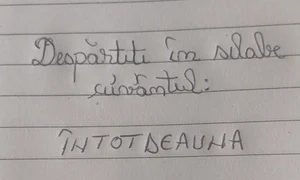 Despărtiti în silabe
cuvântul:
ÎNTOTDEAUNA